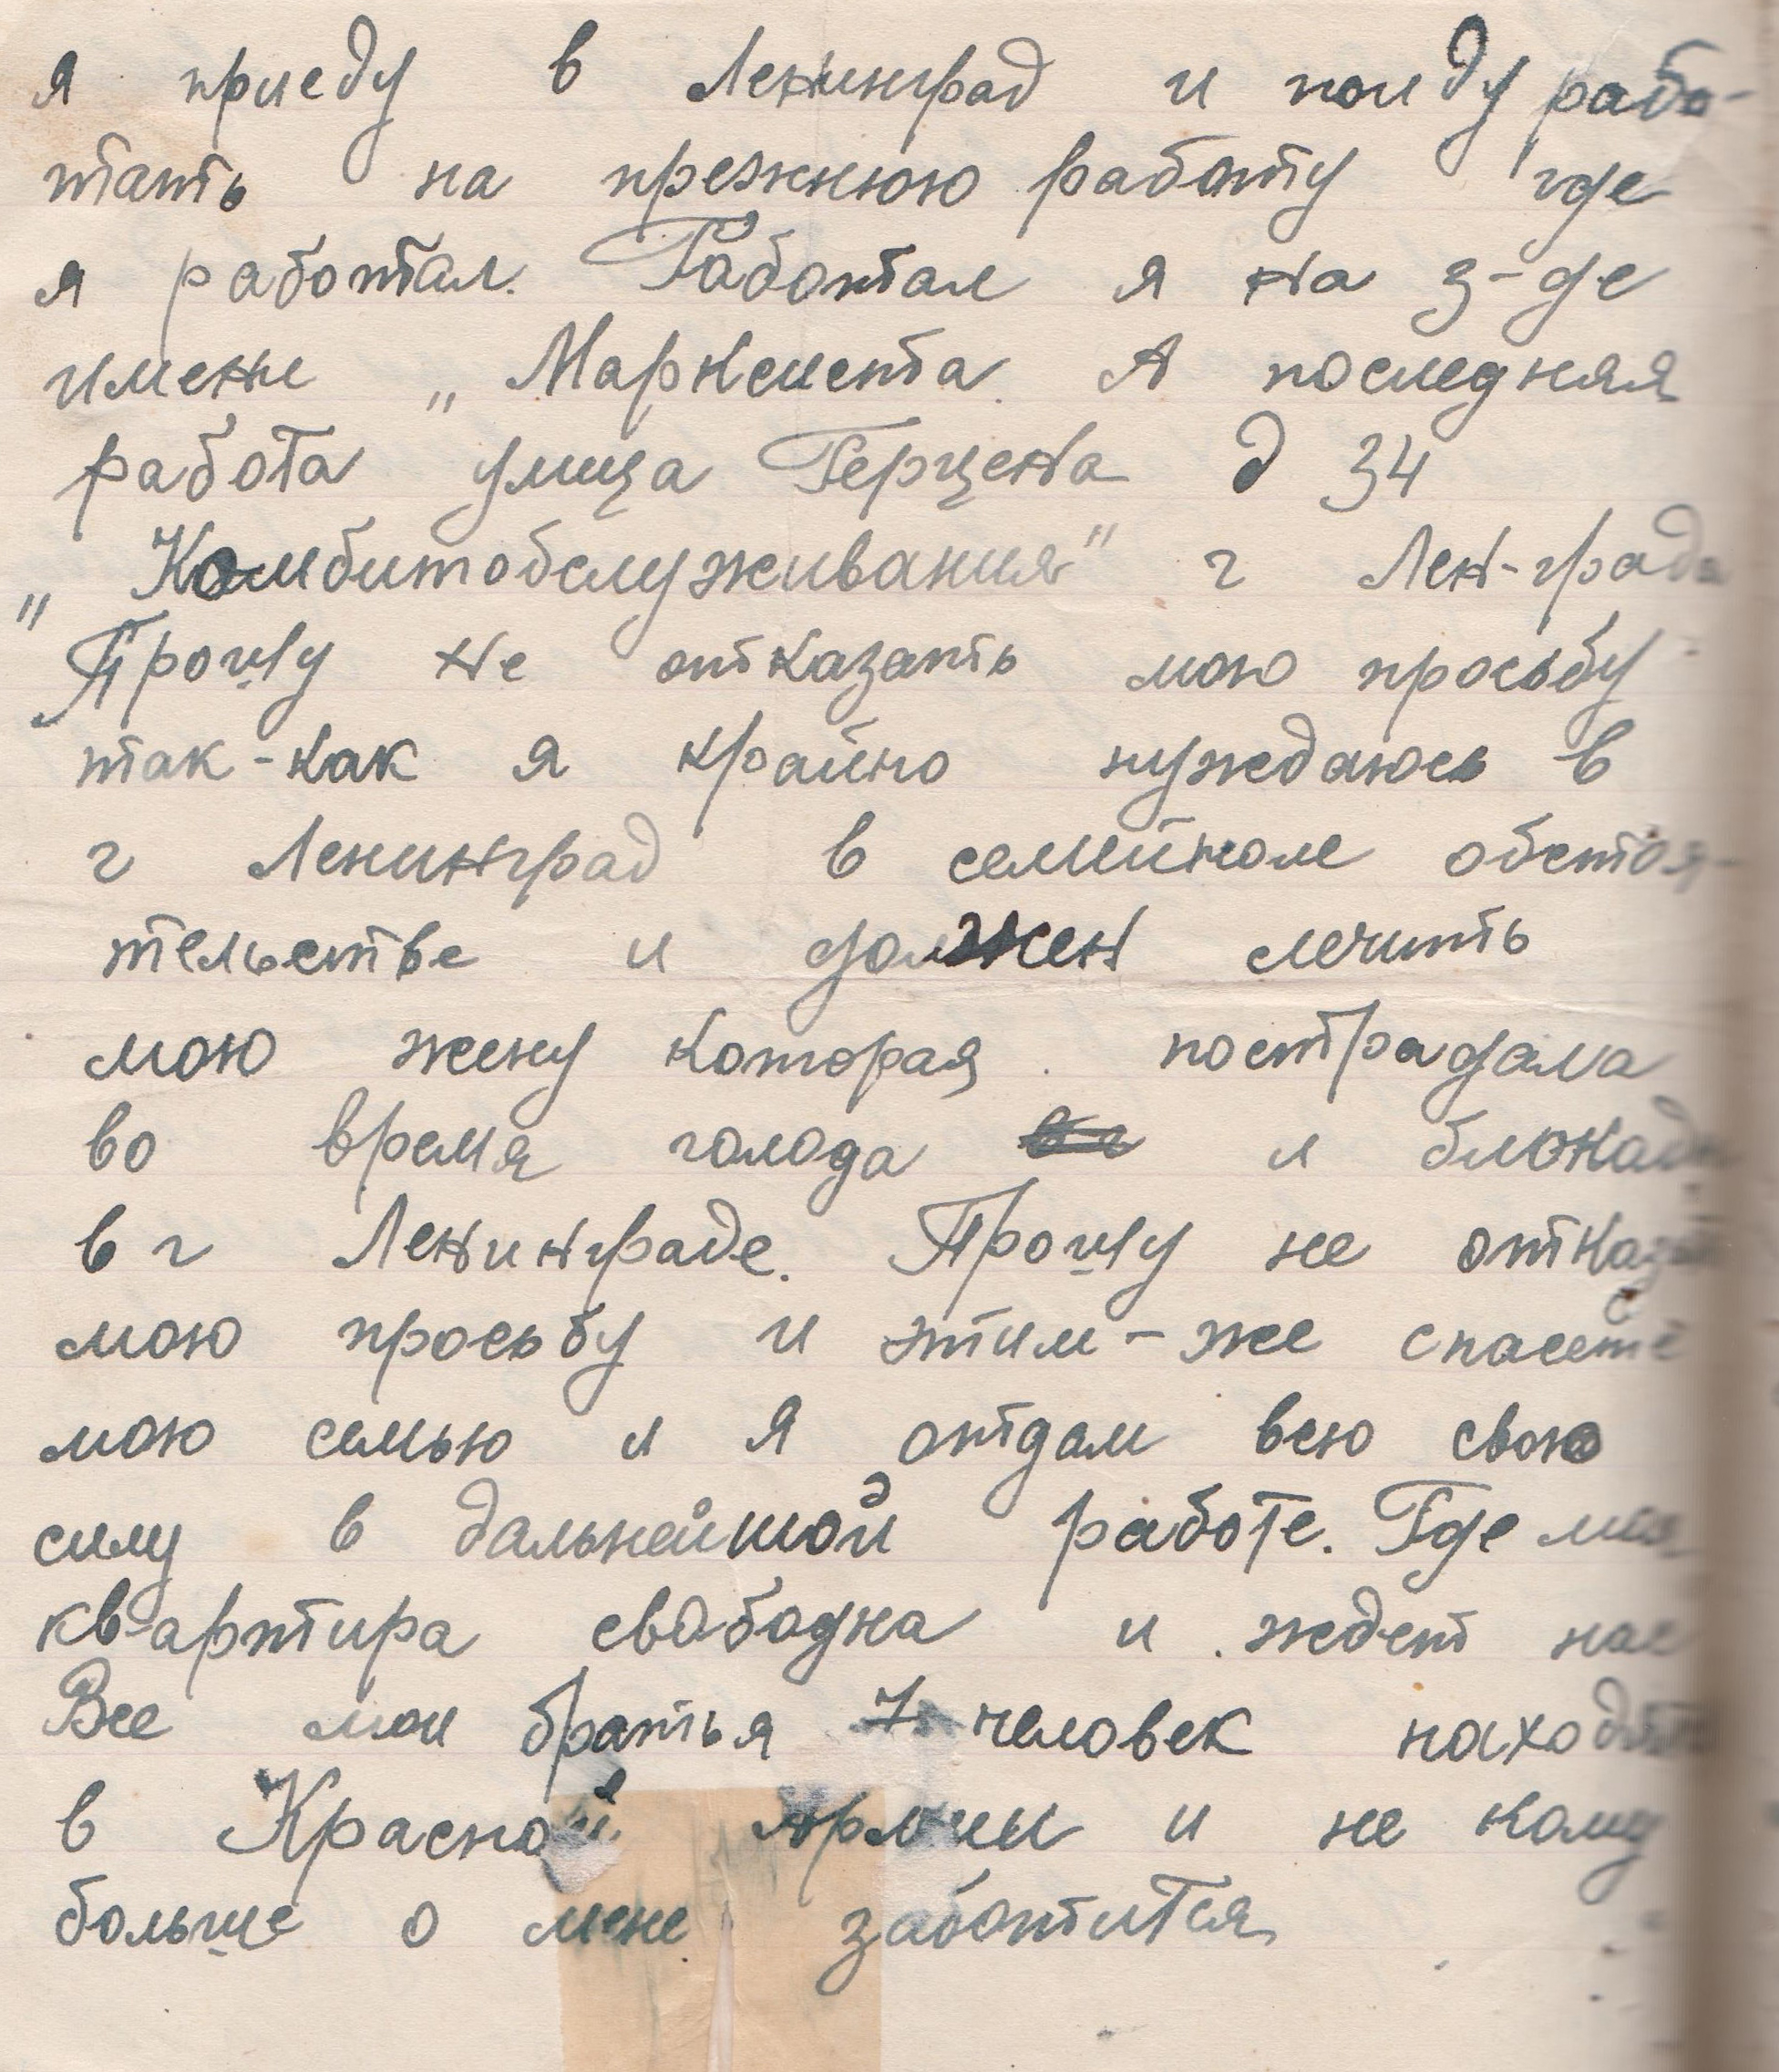 я приеду в Ленинград и поиду рабо-
тать на прежнюю работу где
я работал. Работал я на з-де
имени „Марксиста. А последняя
работа улица Герцена д 34
„Комбитобслуживания" г Лен-града
Прошу не отказать мою просьбу
так-как я крайно нуждаюсь в
г Ленинград в семейном обстоя-
тельстве и должен лечить
мою жену которая пострадала
во время голода и блокады
в г Ленинграде. Прошу не отказать
мою просьбу и этим-же спасете
мою семью и я отдам всю свою
силу в дальнейшой работе. Где моя
квартира свабодна и ждет нас
Все мои братья 7 человек находятся
в Красной Армии и не кому
больше о мене заботится